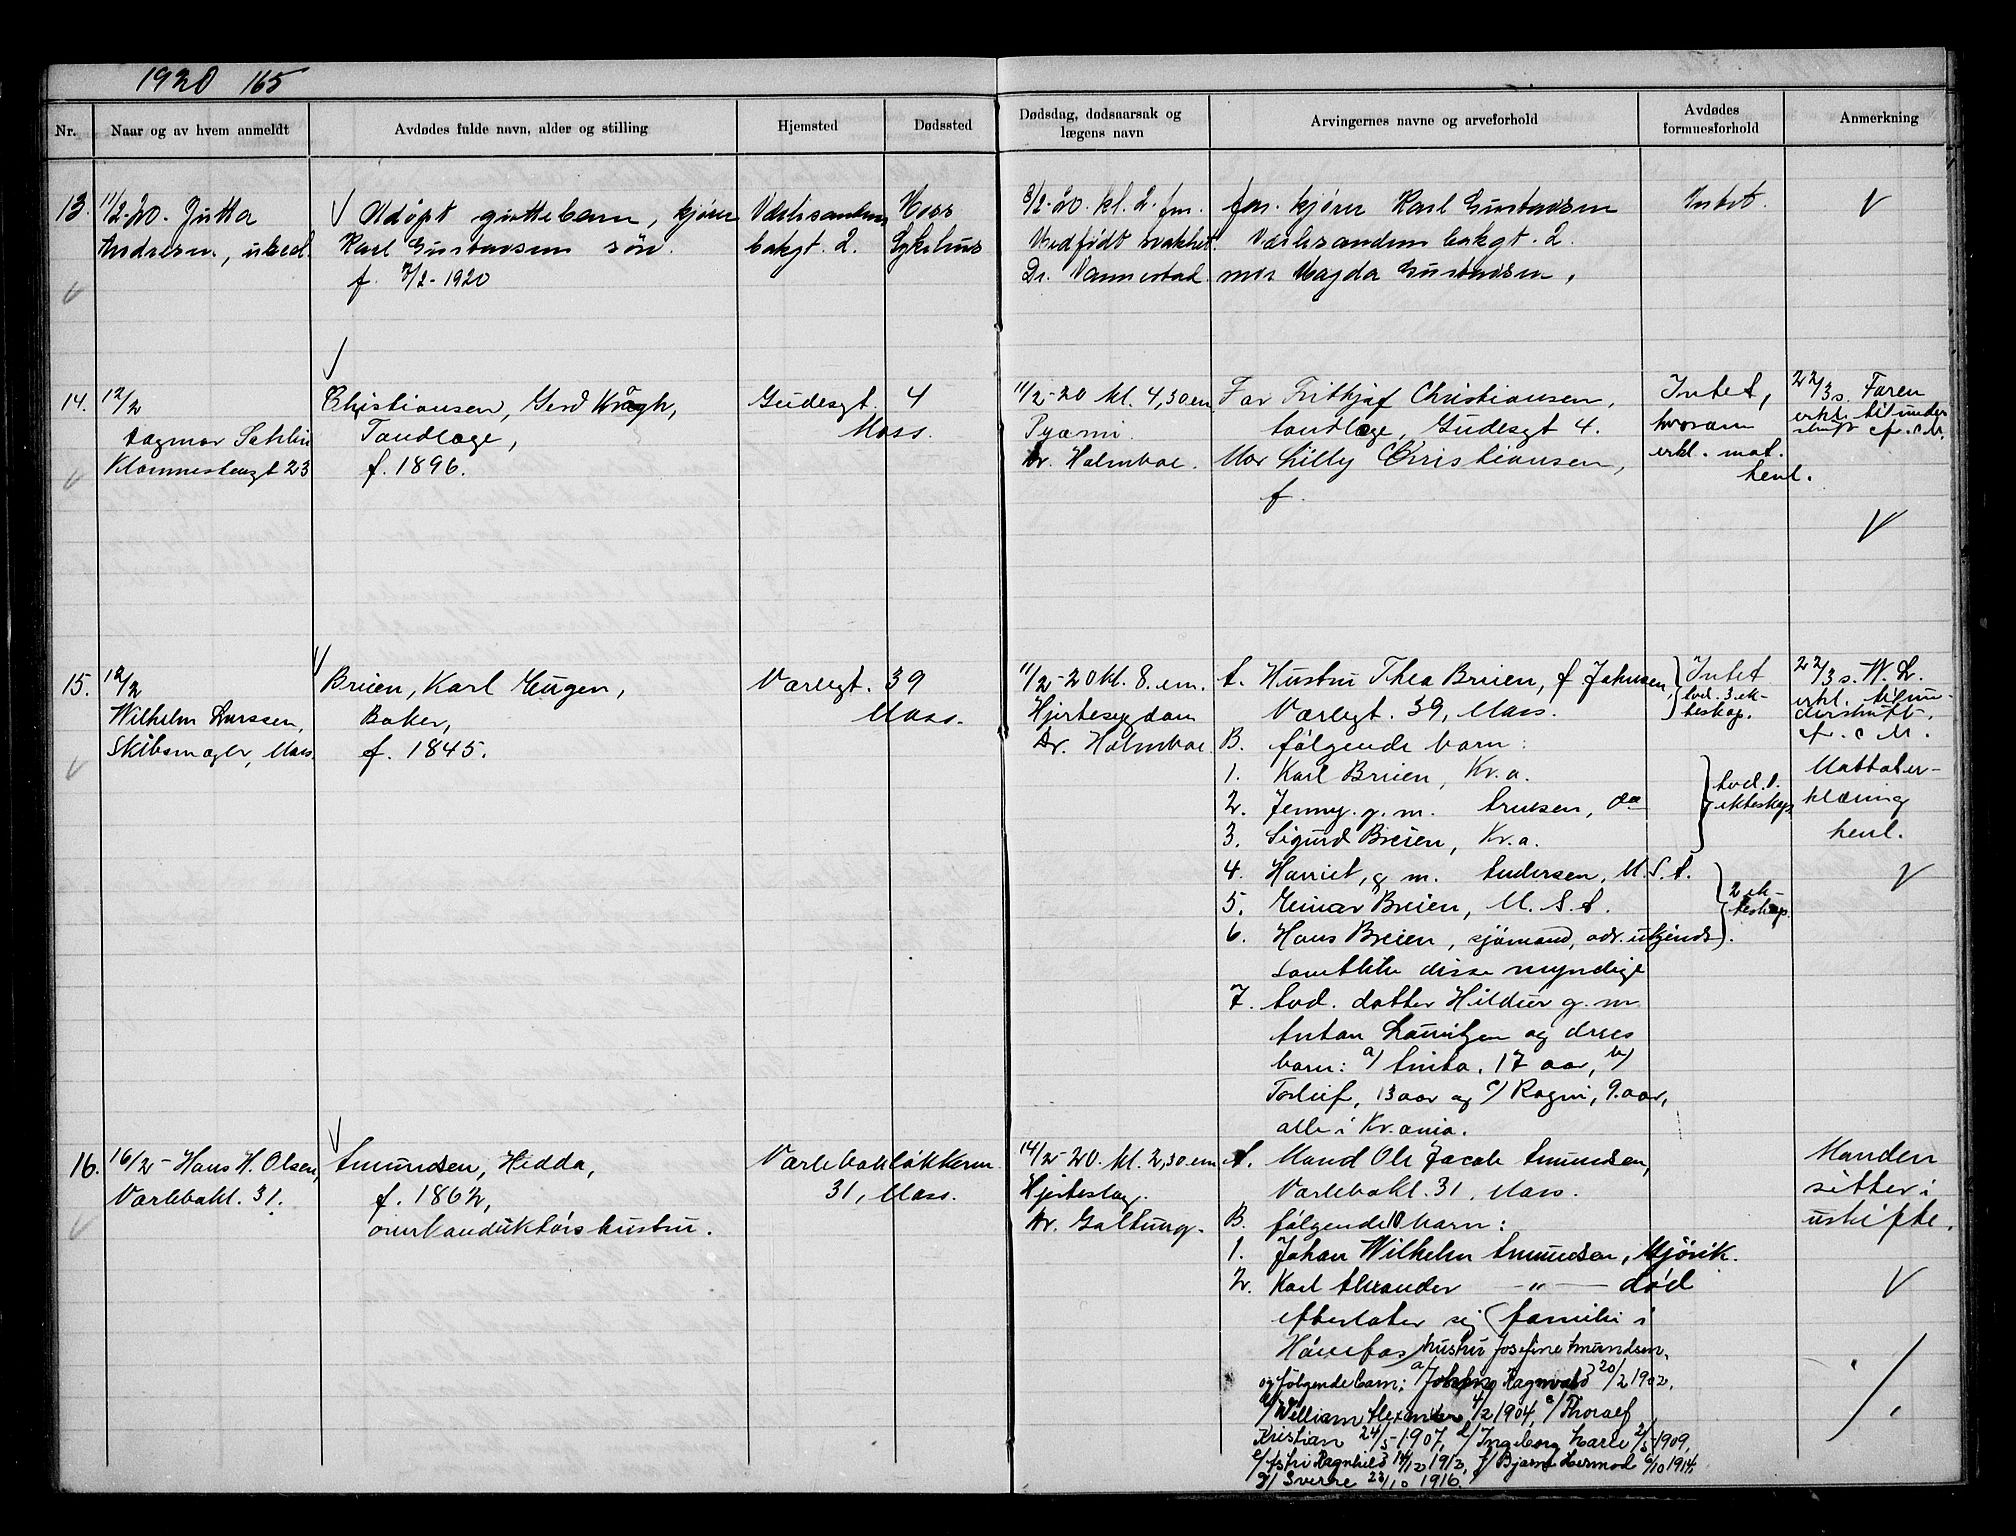 1920 165
Nr.
Naar og av hvem anmeldt
Avdødes fulde navn, alder og stilling
Hjemsted
Dødssted
Dødsdag, dødsaarsak og
lægens navn
Arvingernes navne og arveforhold
Avdødes
formuesforhold
Anmerkning
13.
11/2-20. Jutta
Andresen, ubed.
Udøpt guttebarn, kjører
Karl Gustavsens søn.
f. 7/2-1920
bakgt. 2.
Moss
Sykehus
8/2-20. kl. 2. fm.
Medfødt svakhet.
Dr. Vannestad.
far. kjører Karl Gustavsen
bakgt. 2.
mor Magda Gustavsen,
Intet.
14.
12/2
Dagmar Sahlin
23
Christiansen, Gerd Kragh,
Tandlæge,
f. 1896.
Gudesgt. 4
Moss.
11/2-20 kl. 4,30 em
Pyæmi.
Dr. Holmboe.
Far Frithjof Christiansen,
tandlæge, Gudesgt 4.
Mor Lilly Christiansen,
f.
Intet,
hvorom
erkl. mot.
henl.
22/3 s. Faren
erkl. til under
skrift
15.
12/2
Wilhelm Larssen,
Skibsmægler, Moss.
Breien, Karl Eugen,
Baker,
f. 1845.
Varlegt. 39
Moss.
11/2-20 kl. 8. em.
Hjertesygdom
Dr. Holmboe
A. Hustru Thea Breien, f Johnsen,
Værlegt. 39, Moss.
B. følgende barn:
1. Karl Breien, Kr.a.
2. Jenny g. m. Arnesen, do
3. Sigurd Breien, Kr.a.
4. Harriet, g m. Andersen, U.S.A.
5. Einar Breien, U.S.A.
6. Hans Breien, sjömand, adr. ukjendt.
samtlige disse myndige
7. Avd. datter Hildur g. m
Anton Lauritzen og deres
barn: a/ Anita, 17 aar, b/
Torleif, 13 aar og c/ Ragni, 9. aar,
alle i Kr.ania.
Intet
Avd. 3. ek-
teskap.
Avd. 1.
ekteskap
2 ek-
teskap.
22/3 s. W. L.
erkl. til un-
derskrift.
Mottaler-
klæring
henl.
16.
16/2-Hans H. Olsen,
Varlebakl. 31.
Amundsen, Hedda,
f. 1862,
overkonduktörs hustru.
Varlebakløkkerne
31, Moss.
14/2-20. kl. 2,30 em
Hjerteslag.
Dr. Galtung.
A. Mand Ole Jacob Amundsen,
Varlebakl. 31, Moss.
B. følgende 10 barn:
1. Johan Wilhelm Amundsen, Gjövik.
2. Karl Alexander —"— død
efterlater sig familie i
Hønefos hustru Josefine Amundsen,
og følgende barn: a/ Ragnvald 20/2 1902,
b/ William Alexander 4/2 1904, c/ Thoralf
Kristian 24/5-1907, d/ Ingeborg Marie 2/5-1909,
e/ Astri Ragnhild 14/12 1912, f/ Bjarne Hermod 6/10 1914,
g/ Sverre 23/10 1916.
Manden
sitter i
uskifte.